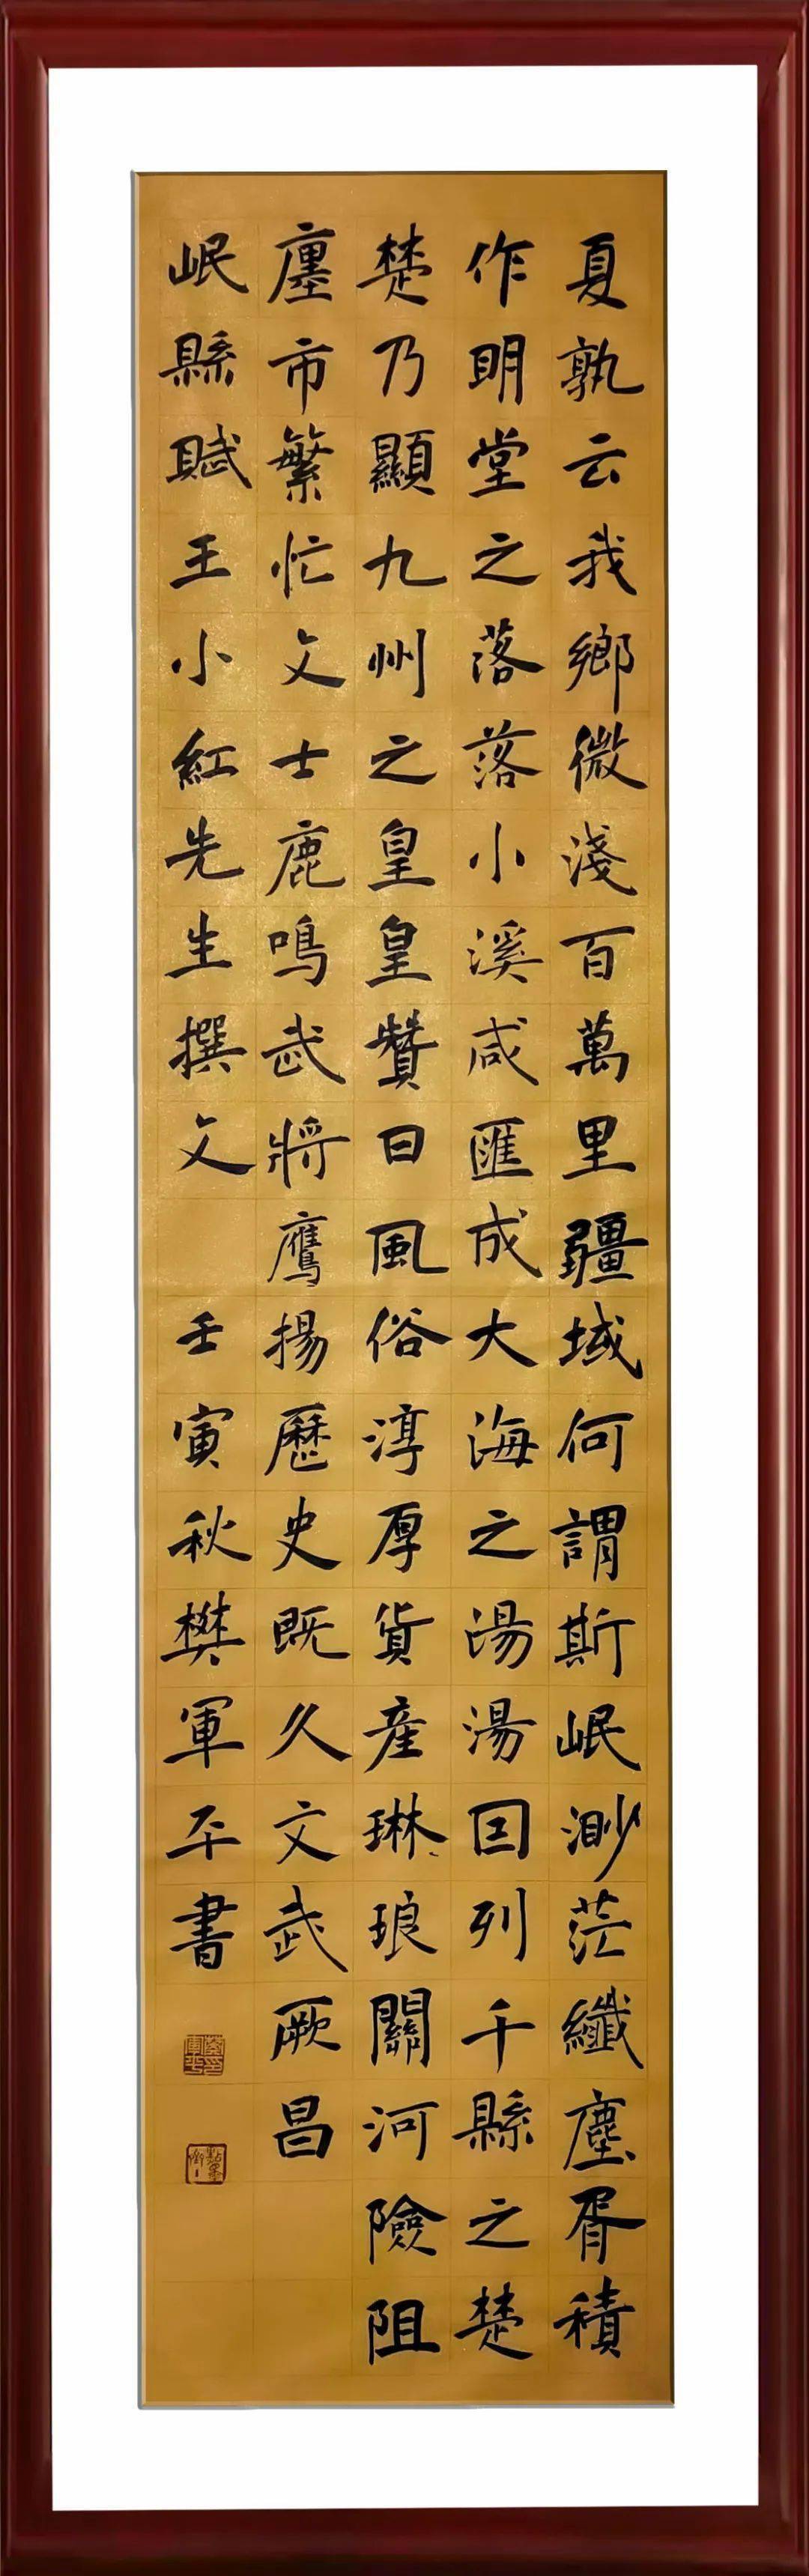 夏孰云我鄉微淺百萬里疆域何謂斯岷渺茫纖塵胥積
作明堂之落落小溪咸匯成大海之湯湯囙列千縣之楚
楚乃顯九州之皇皇贊曰風俗淳厚貨産琳琅關河險阻
廛市繁忙文士鹿鳴武將鷹揚歷史既久文武厥昌
岷縣賦王小紅先生撰文 壬寅秋樊軍平書